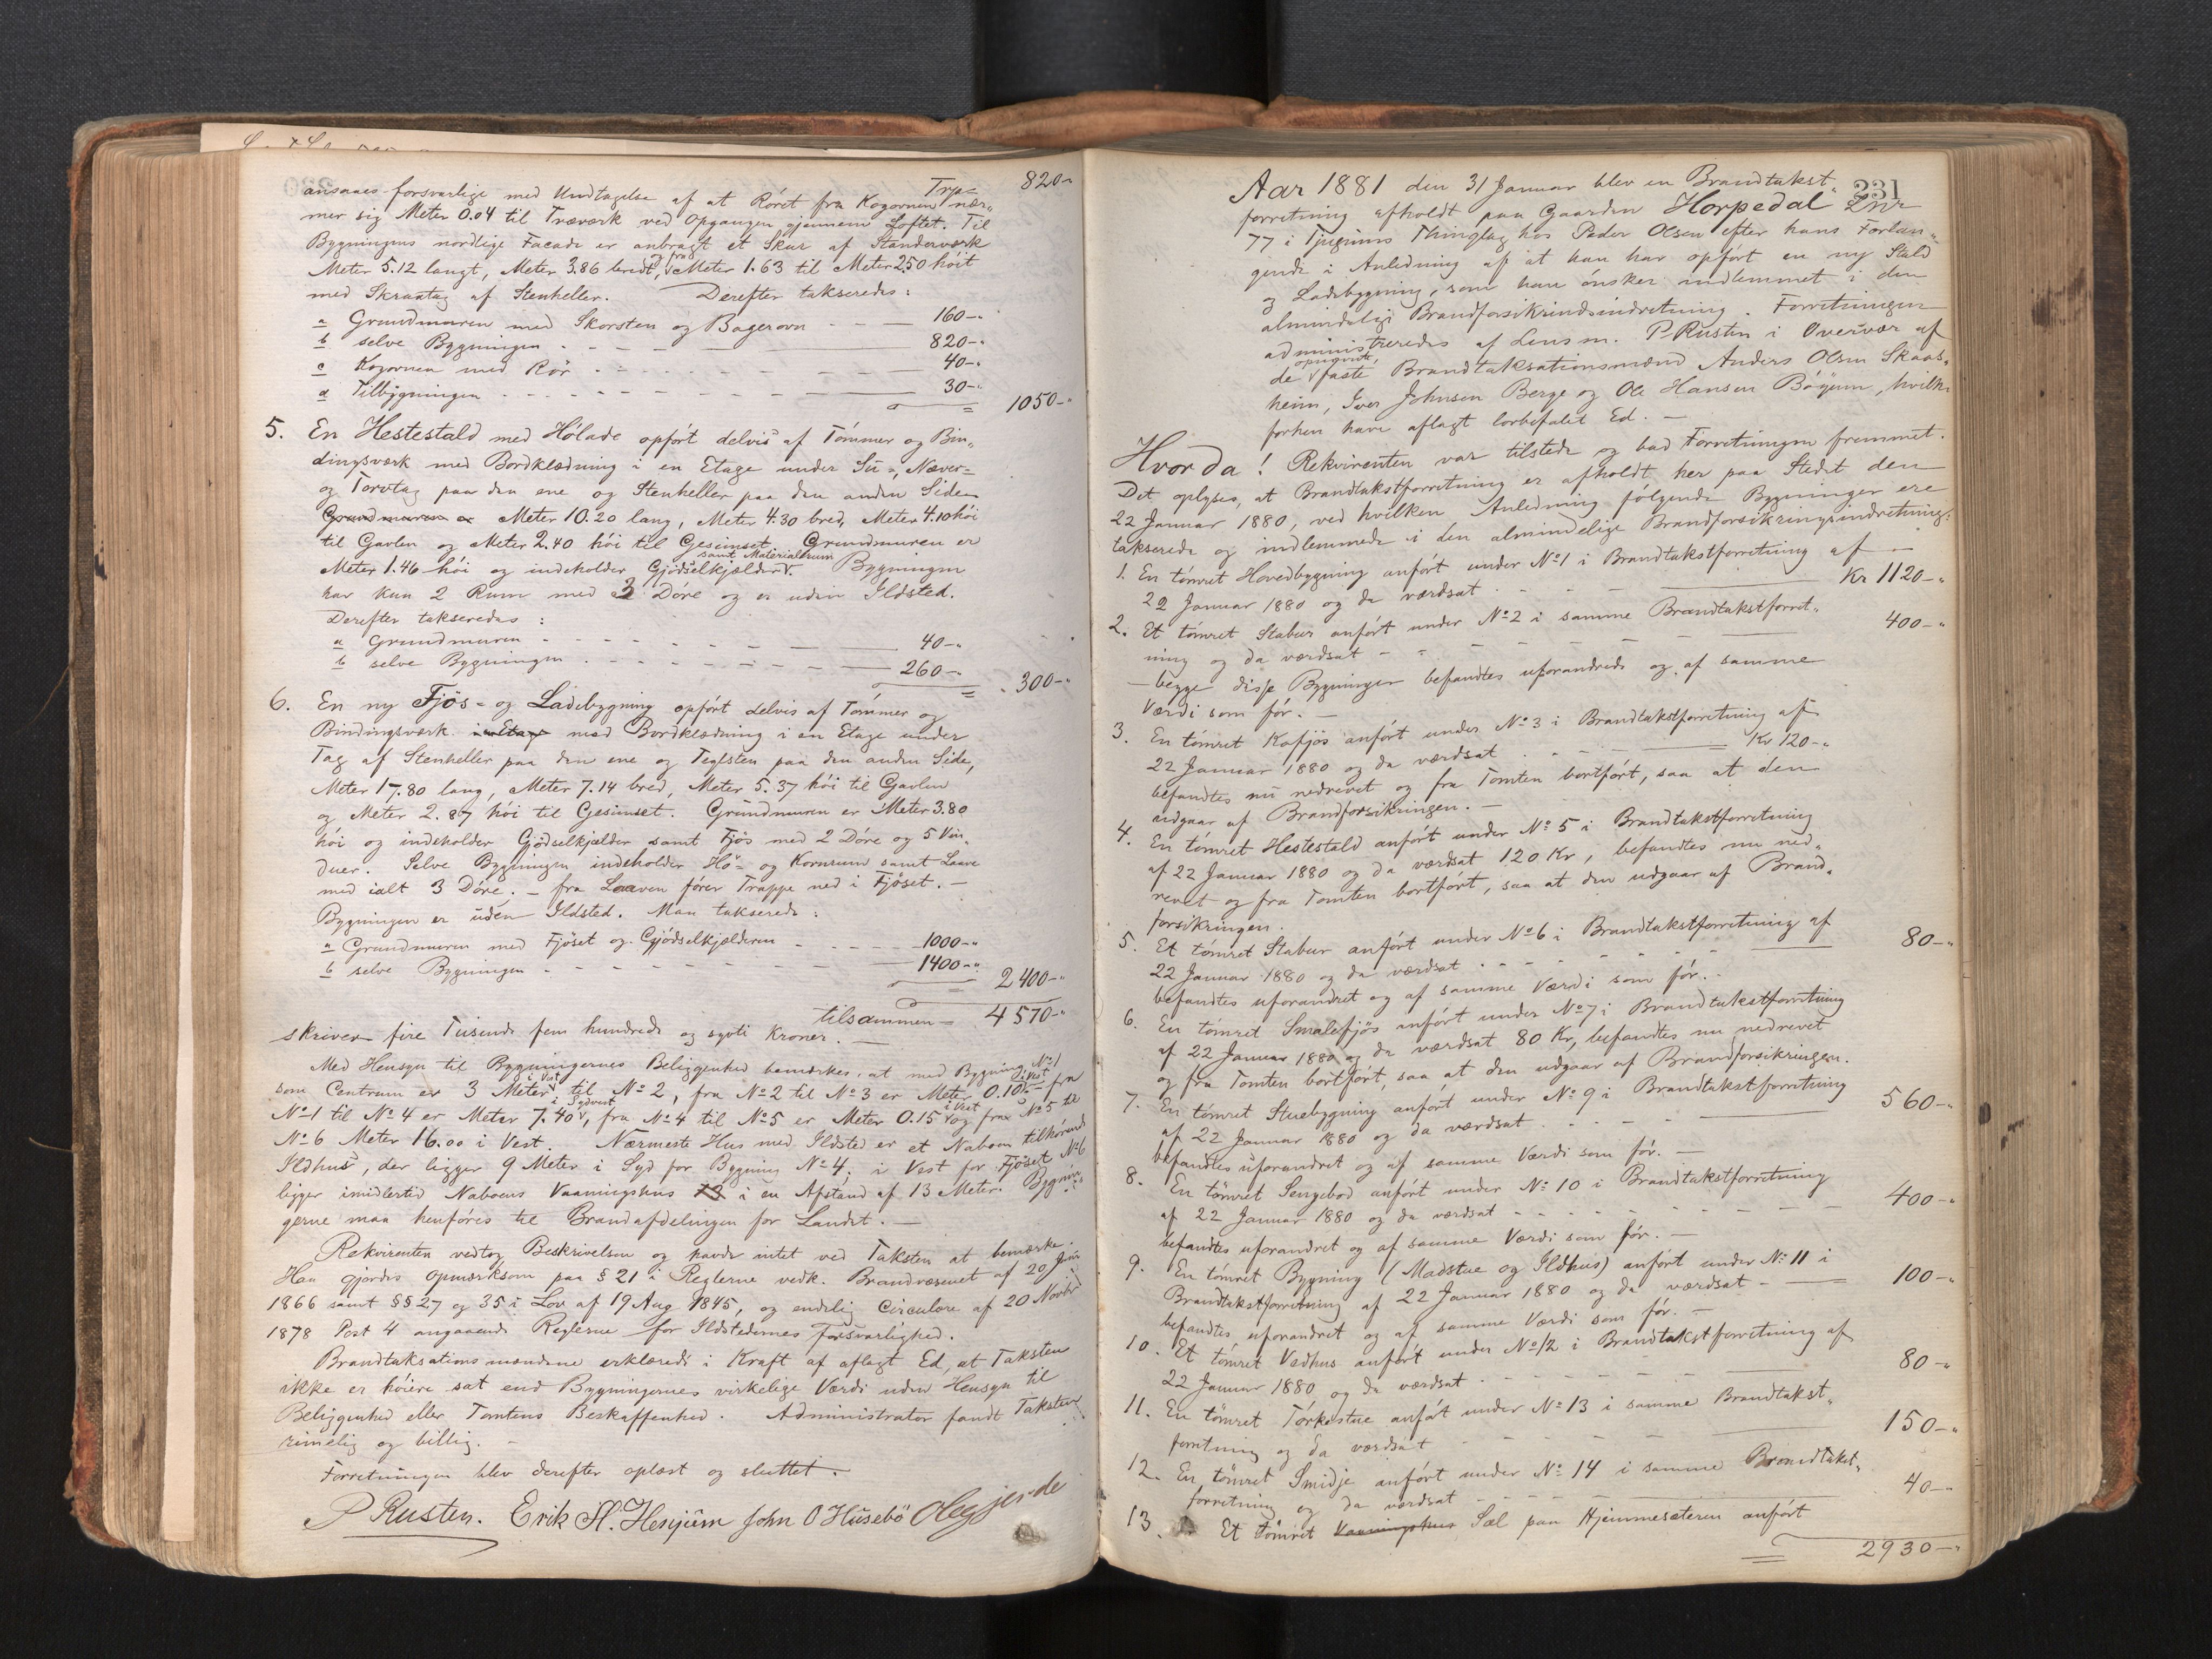 Trp= 820-"
ansaaes forsvarlige med Undtagelse af at Röret fra Kogovnen nær„
mer sig Meter 0.04 til Træværk ved Opgangen gjennem Loftet. Til
Bygningens nordlige Facade er anbragt et Skur af Standerværk
Meter 5.12 langt, Meter 3.86 bredt, og fra Meter 1.63 til Meter 2.50 höit
med Skraatag af Stenheller. Derefter takseredes:
a Grundmuren med Skorsten og Bagerovn - - 160-"
b selve Bygningen - - - 820-"
c Kogovnen med Rör - - - 40-"
d Tilbygningen - - - 30-"
= 1050-"
5. En Hestestald med Hölade opfört delvis af Tömmer og Bin„
dingsværk med Bordklædning i en Etage under Su=, Næver=
og Torvtag paa den ene og Stenheller paa den anden Side
Grundmuren er Meter 10.20 lang, Meter 4.30 bred, Meter 4.10 höi
til Gavlen og Meter 2.40 höi til Gesimset. Grundmuren er
Meter 1.46 höi og indeholder Gjödselkjælder samt Materialrum. Bygningen
har kun 2 Rum med 3 Döre og er uden Ildsted.
Derefter takseredes :
a Grundmuren - - - 40-"
b selve Bygningen - - - 260-"
= 300-"
6. En ny Fjös= og Ladebygning opfört delvis af Tömmer og
Bindingsværk i en Etage med Bordklædning i en Etage under
Tag af Stenheller paa den ene og Teglsten paa den anden Side,
Meter 17.80 lang, Meter 7.14 bred, Meter 5.37 höi til Gavlen
og Meter 2.87 höi til Gesimset. Grundmuren er Meter 3.80
höi og indeholder Gjödselkjælder samt Fjös med 2 Döre og 5 Vin„
duer. Selve Bygningen indeholder Hö= og Kornrum samt Laave
med ialt 3 Döre. - fra Laaven förer Trappe ned i Fjöset. -
Bygningen er uden Ildsted. Man takserede :
a Grundmuren med Fjöset og Gjödselkjælderen - - 1000-"
b selve Bygningen - - - 1400-"
= 2400-"
tilsammen = 4570-"
skriver fire Tusende fem hundrede og sytti Kroner. -
Med Hensyn til Bygningernes Beliggenhed bemærkes, at med Bygning No 1
som Centrum er 3 Meter i Vest til No 2, fra No 2 til No 3 er Meter 0.10 i Vest fra
No 1 til No 4 er Meter 7.40 i Sydvest, fra No 4 til No 5 er Meter 0.15 i Vest og fra No 5 til
No 6 Meter 16.00 i Vest. Nærmeste Hus med Ildsted er et Naboen tilhörende
Ildhus, der ligger 9 Meter i Syd for Bygning No 4; i Vest for Fjöset No 6
ligger imidlertid Naboens Vaaningshus i en Afstand af 13 Meter. Bygnin„
gerne maa henföres til Brandafdelingen for Landet. -
Rekvirenten vedtog Beskrivelsen og havde intet ved Taksten at bemærke.
Han gjordes opmærksom paa § 21 i Reglerne vedk. Brandvæsenet af 20 Juni
1866 samt §§ 27 og 35 i Lov af 19 Aug 1845, og endelig Circulære af 20 Novbr
1878 Post 4 angaaende Reglerne for Ildstedernes Forsvarlighed.
Brandtaksationsmændene erklærede i Kraft af aflagt Ed, at Taksten
ikke er höiere sat end Bygningernes virkelige Værdi uden Hensyn til
Beliggenhed eller Tomtens Beskaffenhed. Administrator fandt Taksten
rimelig og billig. -
Forretningen blev derefter oplæst og sluttet. -
P Rusten. Erik H. Henjum John O Husebö
231
Aar 1881 den 31 Januar blev en Brandtakst„
forretning afholdt paa Gaarden Horpedal Lnr
77 i Tjugums Thinglag hos Peder Olsen efter hans Forlan„
gende i Anledning af at han har opfört en ny Stald
og Ladebygning, som han önsker indlemmet i den
almindelige Brandforsikrindsindretning. Forretningen
administreredes af Lensm. P Rusten i Overvær af
de opnævnte, faste Brandtaksationsmænd Anders Olsen Skaas„
heim, Iver Johnsen Berge og Ole Hansen Böyum, hvilke
forhen have aflagt lovbefalet Ed. -
Hvorda! Rekvirenten var tilstede og bad Forretningen fremmet.
Det oplyses, at Brandtakstforretning er afholdt her paa Stedet den
22 Januar 1880, ved hvilken Anledning fölgende Bygninger ere
takserede og indlemmede i den almindelige Brandforsikringsindretning:
1. En tömret Hovedbygning anfört under No 1 i Brandtakstforretning af -
22 Januar 1880 og da værdsat - - - Kr 1120-"
2. Et tömret Stabur anfört under No 2 i samme Brandtakstforret„
ning og da værdsat - - - 400-"
- begge disse Bygninger befandtes uforandrede og af samme
Værdi som för. -
3. En tömret Kofjös anfört under No 3 i Brandtakstforretning af
22 Januar 1880 og da værdsat - - - Kr 120-"
befandtes nu nedrevet og fra Tomten bortfört, saa at den
udgaar af Brandforsikringen. -
4. En tömret Hestestald anfört under No 5 i Brandtakstforretning
af 22 Januar 1880 og da værdsat 120 Kr, befandtes nu ned„
revet og fra Tomten bortfört, saa at den udgaar af Brand„
forsikringen.
5. Et tömret Stabur anfört under No 6 i Brandtakstforretning af
22 Januar 1880 og da værdsat - - - 80-"
befandtes uforandret og af samme Værdi som för. -
6. En tömret Smalefjös anfört under No 7 i Brandtakstforretning
af 22 Januar 1880 og da værdsat 80 Kr, befandtes nu nedrevet
og fra Tomten bortfört, saa at den udgaar af Brandforsikringen.
7. En tömret Stuebygning anfört under No 9 i Brandtakstforretning
af 22 Januar 1880 og da værdsat - - - 560-"
befandtes uforandret og af samme Værdi som för. -
8. En tömret Sengebod anfört under No 10 i Brandtakstforretning
af 22 Januar 1880 og da værdsat - - - 400-"
befandtes uforandret og af samme Værdi som för. -
9. En tömret Bygning (Madstue og Ildhus) anfört under No 11 i
Brandtakstforretning af 22 Januar 1880 og da værdsat - - 100-"
befandtes uforandret og af samme Værdi som för. -
10. Et tömret Vedhus anfört under No 12 i Brandtakstforretning af
22 Januar 1880 og da værdsat - - - 80-"
11. En tömret Törkestue anfört under No 13 i samme Brandtakst„
forretning og da værdsat - - - 150-"
12. En tömret Smidje anfört under No 14 i samme Brandtakst„
forretning og da værdsat - - - 40-"
13. Et tömret Vaaningshus Sæl paa Hjemmesæteren anfört
= 2930-"